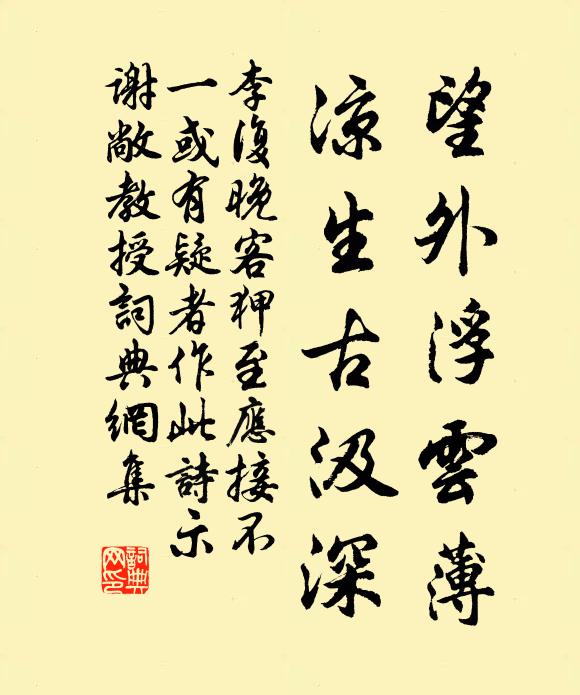 望外浮雲薄
涼生古汲深
李復晚客狎至應接不
一或有疑者作此詩示
謝敞教授詞典網集
詞典网印